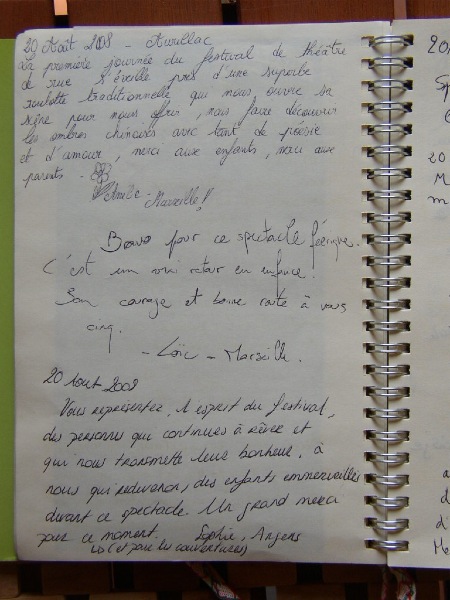 20 Août 2008 - Aurillac
La première journée du festival de théâtre
de rue s'éveille près d'une superbe
roulotte traditionnelle qui nous ouvre sa
scène pour nous offrir, nous faire découvrir
les ombres chinoises avec tant de poésie
et d'amour, merci aux enfants, merci aux
parents -
Amélie - Marseille!
Bravo pour ce spectacle féérique.
C'est un vrai retour en enfance.
Bon courage et bonne route à vous
cinq.
- Loïc - Marseille.
20 Aout 2008
Vous représentez, l'esprit du festival,
des personnes qui continues à rêver et
qui nous transmette leur bonheur, à
nous qui redevenons, des enfants emmerveillés
devant ce spectacle. Un grand merci
pour ce moment. Sophie, Angers
↳ (et pour les couvertures)
20
Sp
20
M
m
a
d
d'
Me